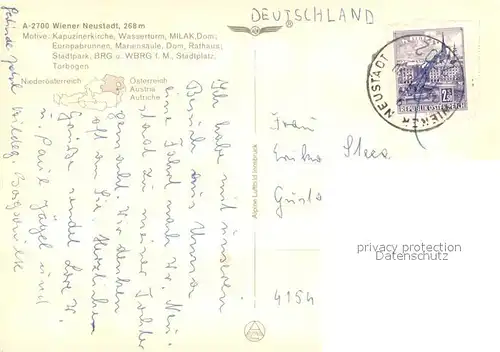 A-2700 Wiener Neustadt, 268 m
Motive: Kapuzinerkirche, Wasserturm, MILAK, Dom;
Europabrunnen, Mariensäule, Dom, Rathaus;
Stadtpark, BRG u. WBRG f. M., Stadtplatz,
Torbogen
Niederösterreich
Österreich
Austria
Autriche
DEUTSCHLAND
WIENER NEUSTADT
REPUBLIK ÖSTERREICH
Alpine Luftbild Innsbruck
Ich habe mit unserem
Besuch aus Unna
eine Fahrt nach Wr. Neu-
stadt zu meiner Tochter
gemacht. Wir denken
oft an Sie. Herzlichen
Grüße sendet
u. Paul Jäger und
Frau
Erika Stee
4154
privacy protection
Datenschutz